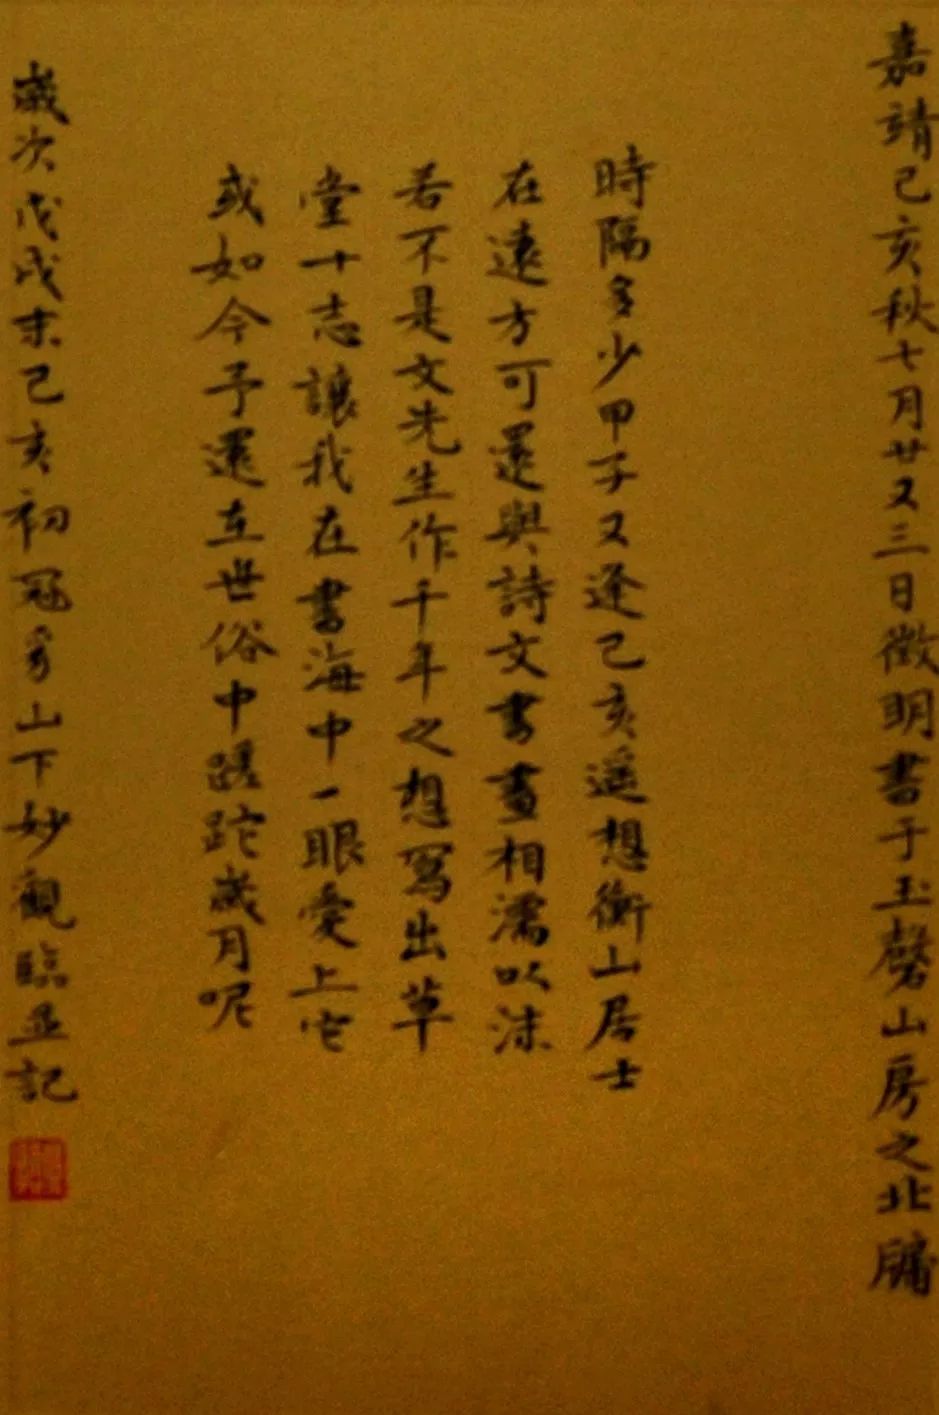 嘉靖己亥秋七月廿又三日徵明書于玉磬山房之北牖
時隔多少甲子又逢己亥遥想衡山居士
在遠方可還與詩文書畫相濡以沫
若不是文先生作千年之想寫出草
堂十志讓我在書海中一眼愛上它
或如今予還在世俗中蹉跎歲月呢
歲次戊戌末己亥初冠豸山下妙觀臨並記